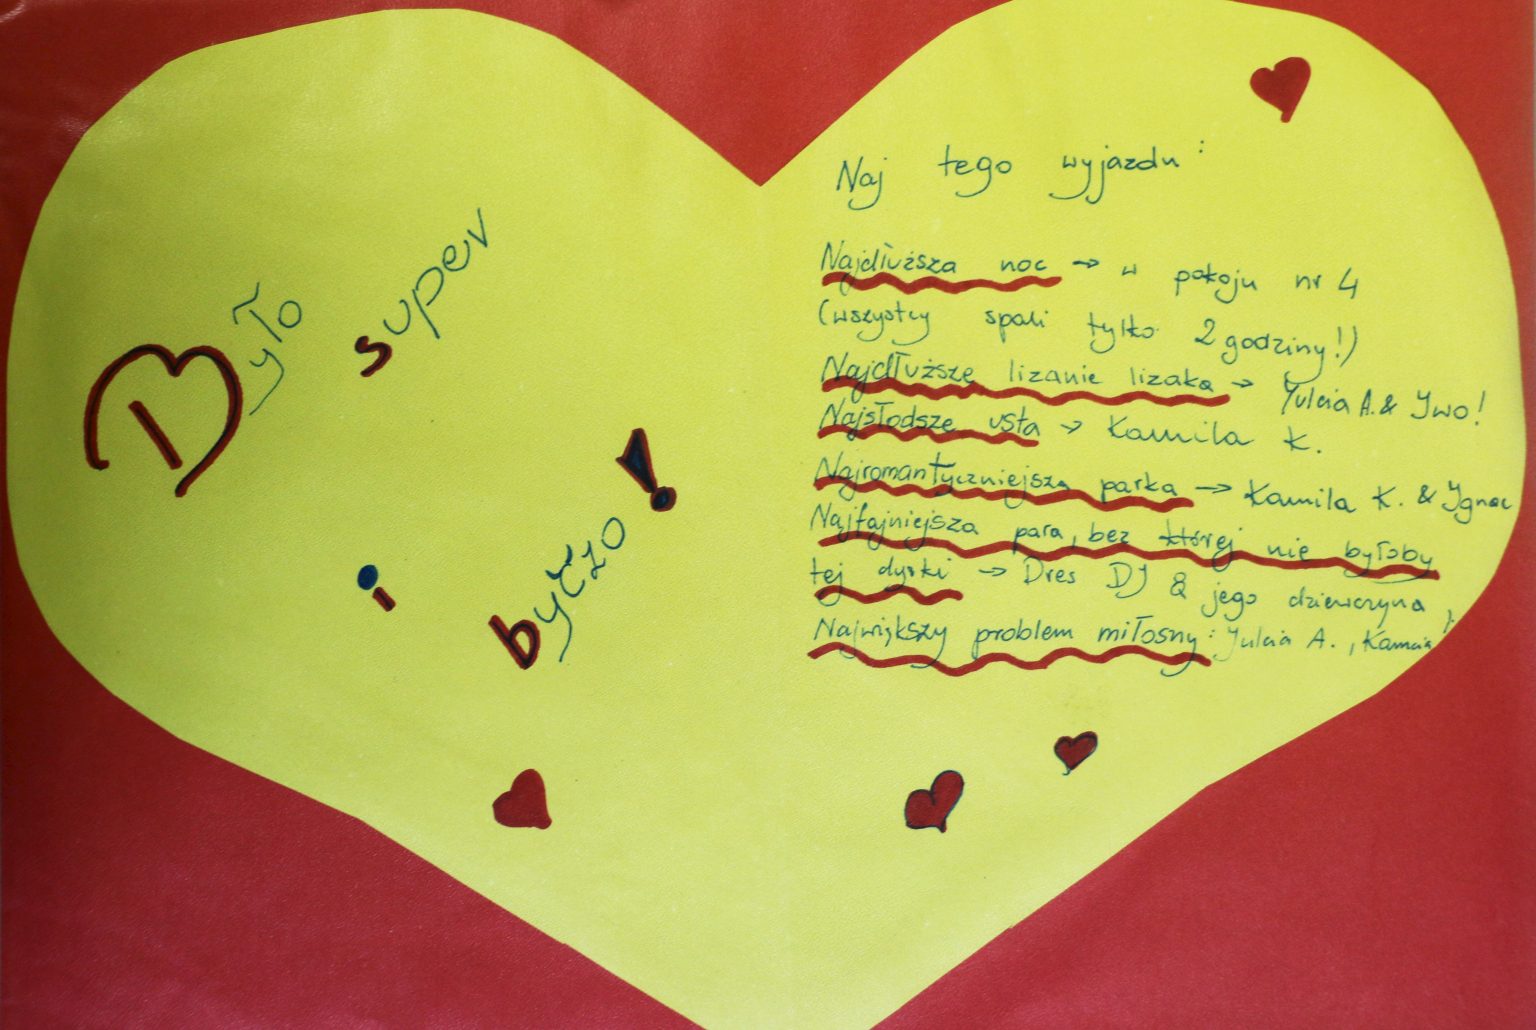 Było
super
i
byczo!
Naj tego wyjazdu:
Najdłuższa noc → w pokoju nr 4
(wszyscy spali tylko 2 godziny!)
Najdłuższe lizanie lizaka → Julcia A. & Iwo!
Najsłodsze usta → Kamila K.
Najromantyczniejsza parka → Kamila K. & Ignac
Najfajniejsza para, bez której nie byłoby
tej dyski → Dres DJ & jego dziewczyna
Największy problem miłosny: Julcia A., Kamcia